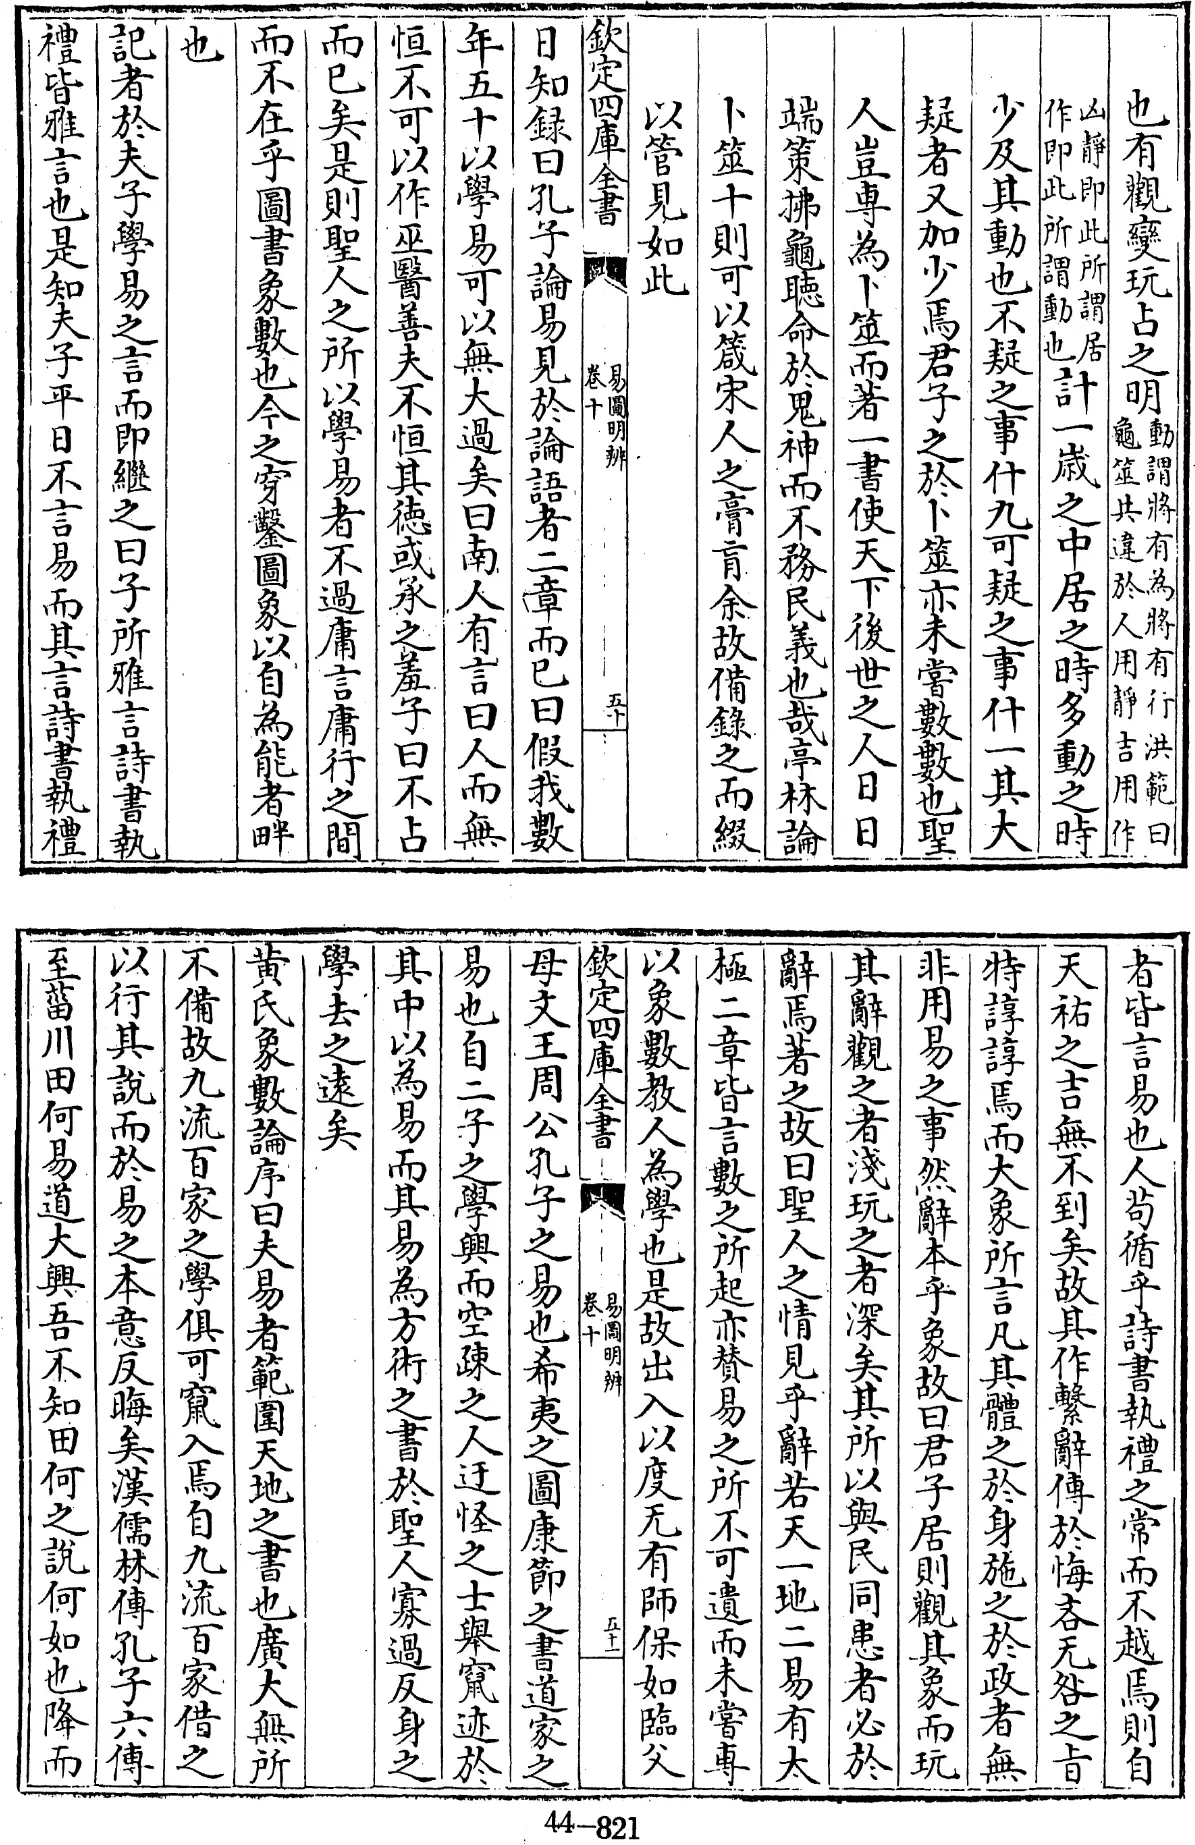 也有觀變玩占之明動謂將有為將有行洪範曰龜筮共違於人用靜吉用作
凶靜即此所謂居作即此所謂動也計一歲之中居之時多動之時
少及其動也不疑之事什九可疑之事什一其大
疑者又加少焉君子之於卜筮亦未嘗數數也聖
人豈專為卜筮而著一書使天下後世之人日日
端策拂龜聽命於鬼神而不務民義也哉亭林論
卜筮十則可以箴宋人之膏肓余故備錄之而綴
以管見如此
欽定四庫全書 易圖明辨 卷十 五十
日知録曰孔子論易見於論語者二章而已曰假我數
年五十以學易可以無大過矣曰南人有言曰人而無
恒不可以作巫醫善夫不恒其徳或承之羞子曰不占
而已矣是則聖人之所以學易者不過庸言庸行之間
而不在乎圖書象數也今之穿鑿圖象以自為能者畔
也
記者於夫子學易之言而即繼之曰子所雅言詩書執
禮皆雅言也是知夫子平日不言易而其言詩書執禮
者皆言易也人茍循乎詩書執禮之常而不越焉則自
天祐之吉無不到矣故其作繫辭傳於悔吝无咎之旨
特諄諄焉而大象所言凡其體之於身施之於政者無
非用易之事然辭本乎象故曰君子居則觀其象而玩
其辭觀之者淺玩之者深矣其所以與民同患者必於
辭焉著之故曰聖人之情見乎辭若天一地二易有太
極二章皆言數之所起亦贊易之所不可遺而未嘗專
以象數教人為學也是故出入以度无有師保如臨父
欽定四庫全書 易圖明辨 卷十 五十一
母文王周公孔子之易也希夷之圖康節之書道家之
易也自二子之學興而空疎之人迂怪之士舉竄迹於
其中以為易而其易為方術之書於聖人寡過反身之
學去之遠矣
黃氏象數論序曰夫易者範圍天地之書也廣大無所
不備故九流百家之學俱可竄入焉自九流百家借之
以行其說而於易之本意反晦矣漢儒林傳孔子六傳
至菑川田何易道大興吾不知田何之說何如也降而
44-821